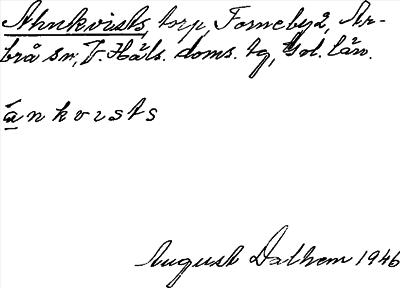 Ahnkvists, torp, Forneby 2, Ar-
brå sn, V. Häls. doms. tg, Gol. län.
ánkvists
August Dalhem 1946